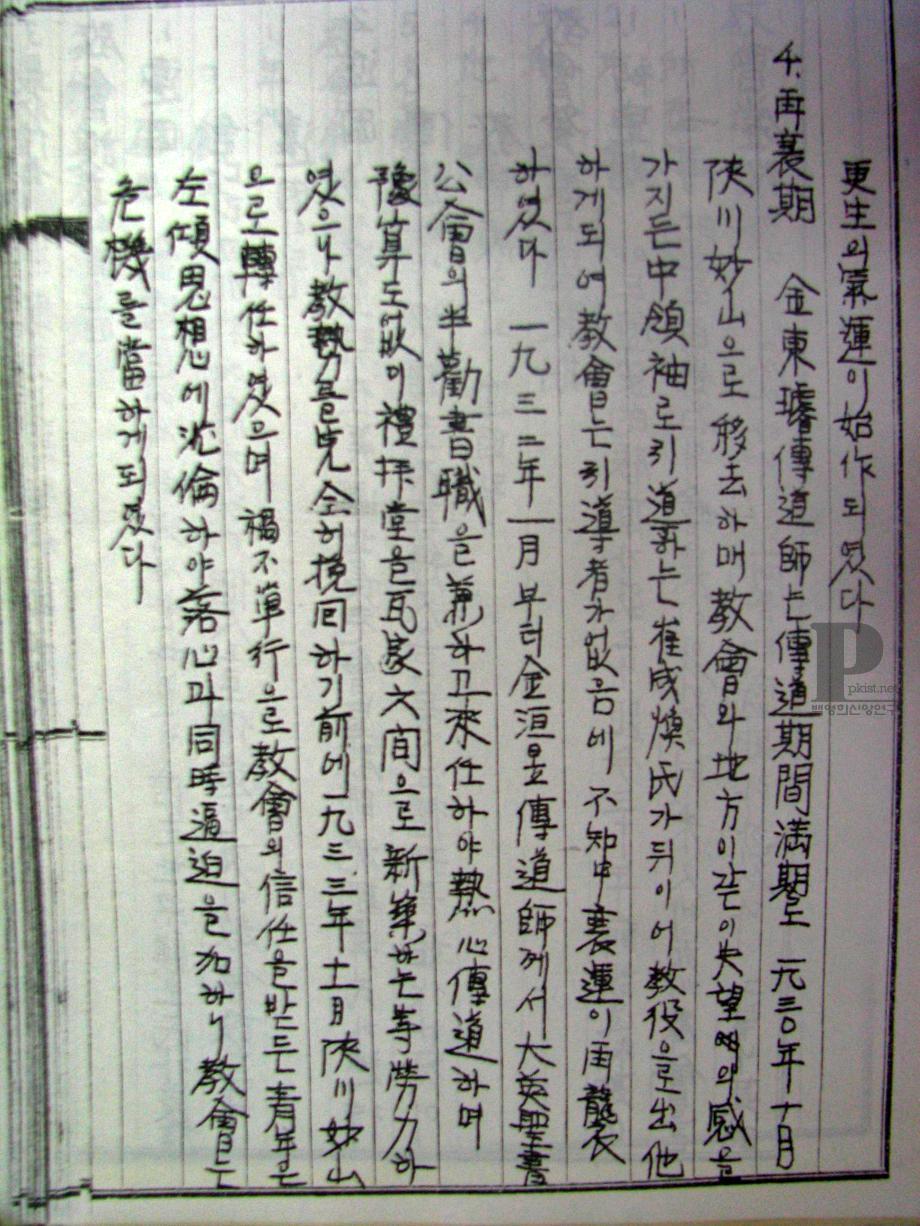 更生의 氣運이 始作되엿다
4. 再衰期 金東璿傳道師는 傳道期間滿期로 一九三〇年 十月
陜川妙山으로 移去하매 教會와 地方이 같은이 失望 的感을
가지든中 領袖로 引導하는 崔成煥氏가 뒤이어 教役으로 出他
하게되여 教會는 引導者가 없음에 不知中 衰運이 再襲
하엿다 一九三二年 一月부터 金洹 傳道師께서 大英聖書
公會의 半勸書職을 兼하고 來任하야 熱心傳道하며
豫算도 없이 禮拜堂을 瓦家 六间으로 新築하는 等 勞力하
엿으나 教勢를 完全히 挽回하기 前에 一九三三年 十二月 陜川妙山
으로 轉任하엿으며 禍不單行으로 教會의 信任을 받든 青年은
左傾思想에 沈倫하야 落心과 同時 逼迫을 加하니 教會는
危機를 當하게 되엿다
pkist.net